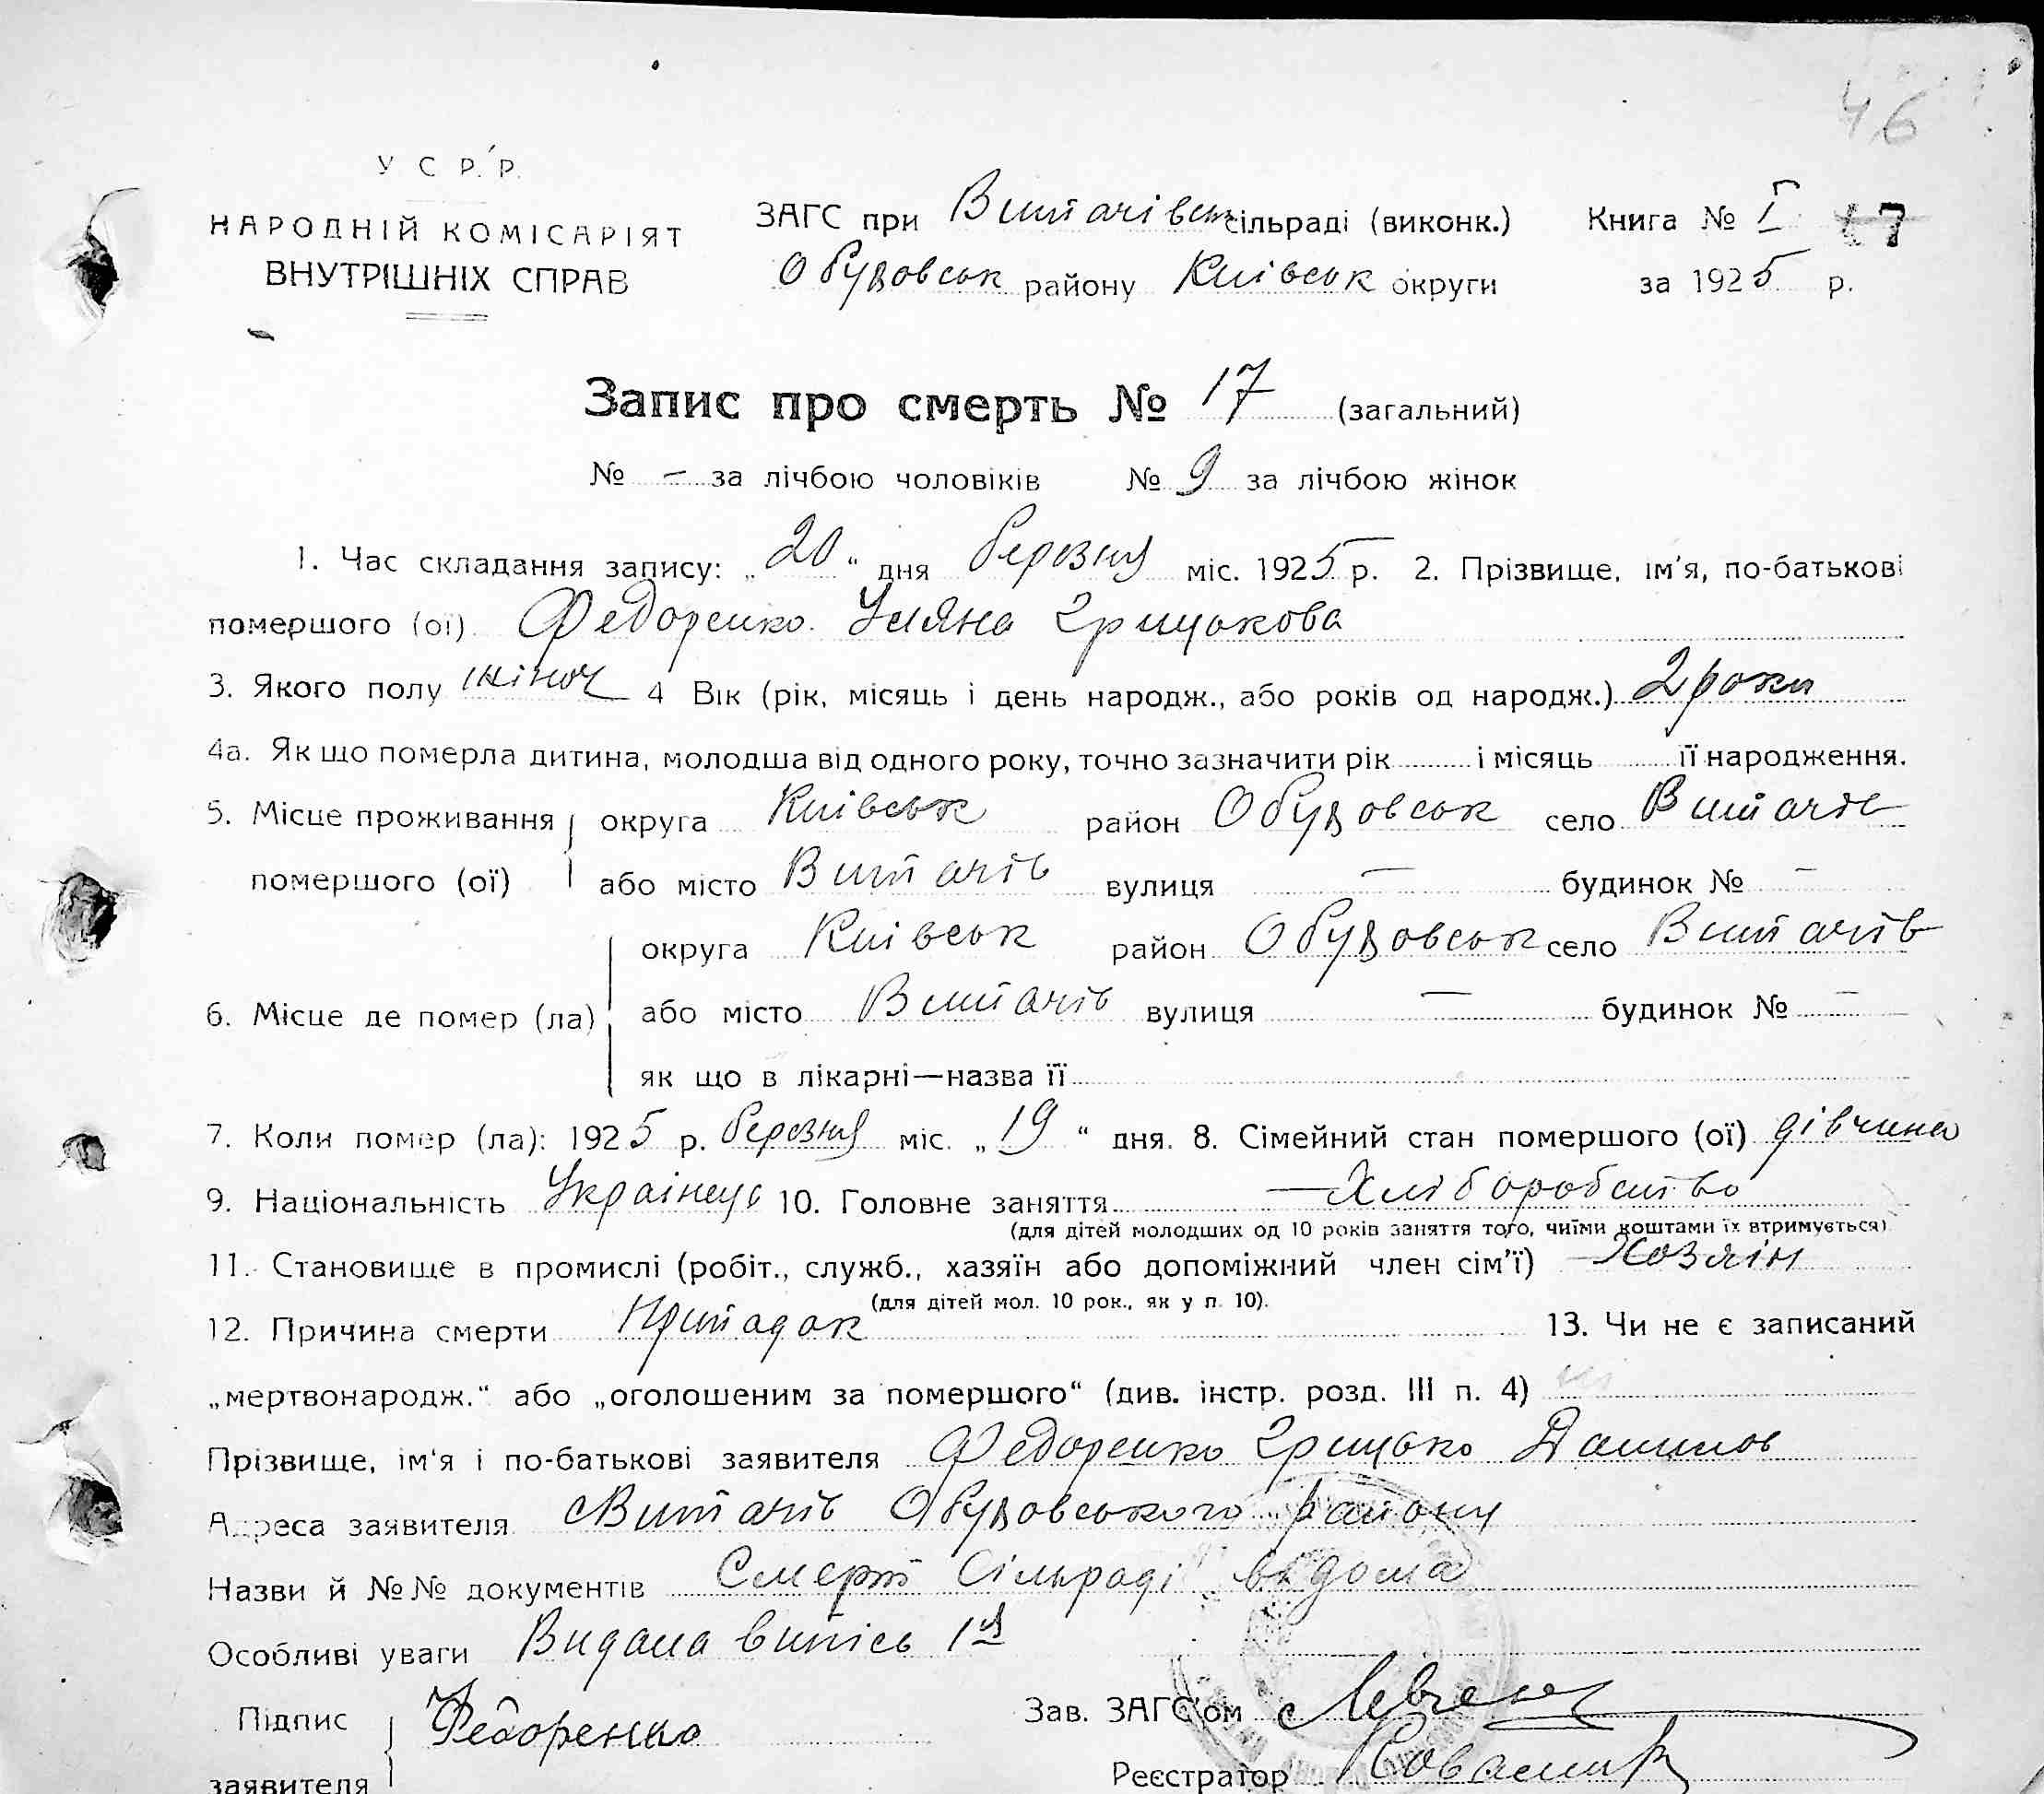 46
У С Р. Р.
НАРОДНІЙ КОМІСАРІЯТ
ВНУТРІШНІХ СПРАВ
ЗАГС при Витачівськ сільраді (виконк.) Книга № I 17
Обуховськ району Київськ округи за 1925 р.
Запис про смерть № 17 (загальний)
№ – за лічбою чоловіків № 9 за лічбою жінок
1. Час складання запису: „20“ дня березня міс. 1925 р. 2. Прізвище, ім'я, по-батькові
помершого (ої) Федоренко Уляна Грицькова
3. Якого полу жіноч 4 Вік (рік, місяць і день народж., або років од народж.) 2 роки
4а. Як що померла дитина, молодша від одного року, точно зазначити рік і місяць її народження.
5. Місце проживання округа Київськ район Обуховськ село Витачів
помершого (ої) або місто Витачів вулиця — будинок № —
округа Київськ район Обуховськ село Витачів
6. Місце де помер (ла) або місто Витачів вулиця — будинок № —
як що в лікарні—назва її
7. Коли помер (ла): 1925 р. березня міс. „19“ дня. 8. Сімейний стан помершого (ої) дівчина
9. Національність Українець 10. Головне заняття — Хліборобство
(для дітей молодших од 10 років заняття того, чиїми коштами їх втримується)
11. Становище в промислі (робіт., служб., хазяїн або допоміжний член сім'ї) — Хозяін
(для дітей мол. 10 рок., як у п. 10).
12. Причина смерти Припадок 13. Чи не є записаний
„мертвонародж.“ або „оголошеним за помершого“ (див. інстр. розд. III п. 4)
Прізвище, ім'я і по-батькові заявителя Федоренко Грицько Данилов
Адреса заявителя Витачів Обуховського району
Назви й №№ документів Смерть Сільраді відома
Особливі уваги Видана випісь 1я
Підпис Федоренко Зав. ЗАГС'ом
заявителя Реєстратор